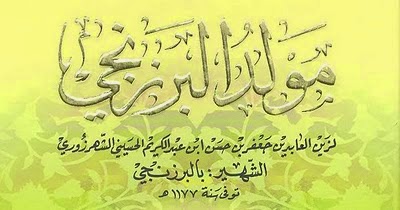 مولد البرزنجي
لزين العابدين جعفر بن حسن ابن عبد الكريم الحسيني الشهرزوري
الشهير: بالبرزنجي
توفي سنة ١١٧٧ هـ